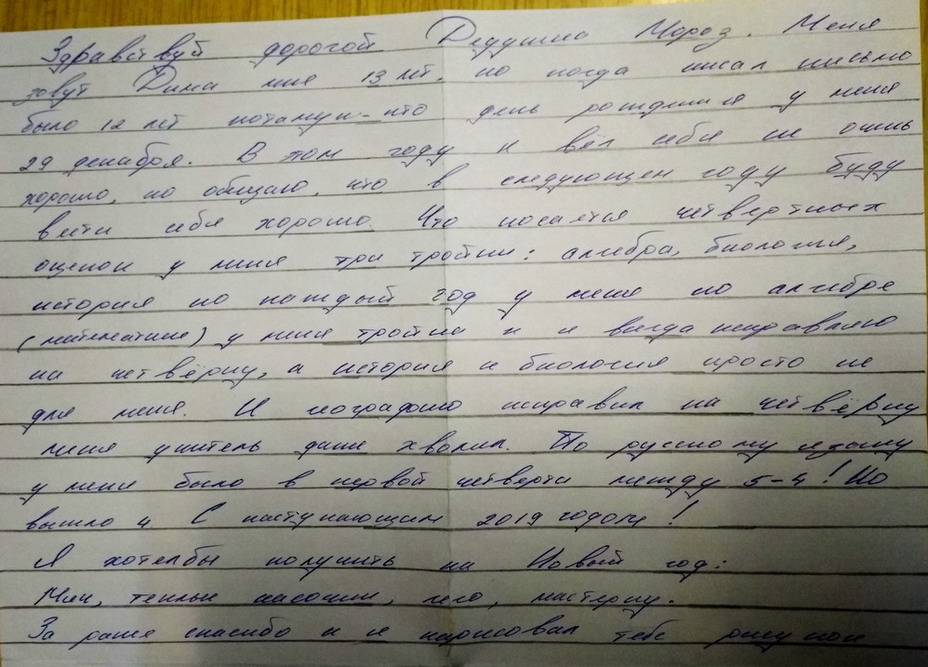 Здравствуй дорогой Дедушка Мороз. Меня
зовут Дима мне 13 лет, но когда писал письмо
было 12 лет потамук-что день рождения у меня
29 декабря. В том году я вёл себя не очень
хорошо, но обищаю, что в следующем году буду
вести себя хорошо. Что косается четвертных
оценок у меня три тройки: алгебра, биология,
история но каждый год у меня по алгебре
(математике) у меня тройка и я всегда исправляю
на четвёрку, а история и биология просто не
для меня. И географию исправил на четвёрку
меня учитель даже хволил. По русскому языку
у меня было в первой четверти между 5-4! Но
вышло 4 С наступающим 2019 годом!
Я хотелбы получить на Новый год:
теплые лего,
За ранее спасибо и я нарисовал тебе рисунок